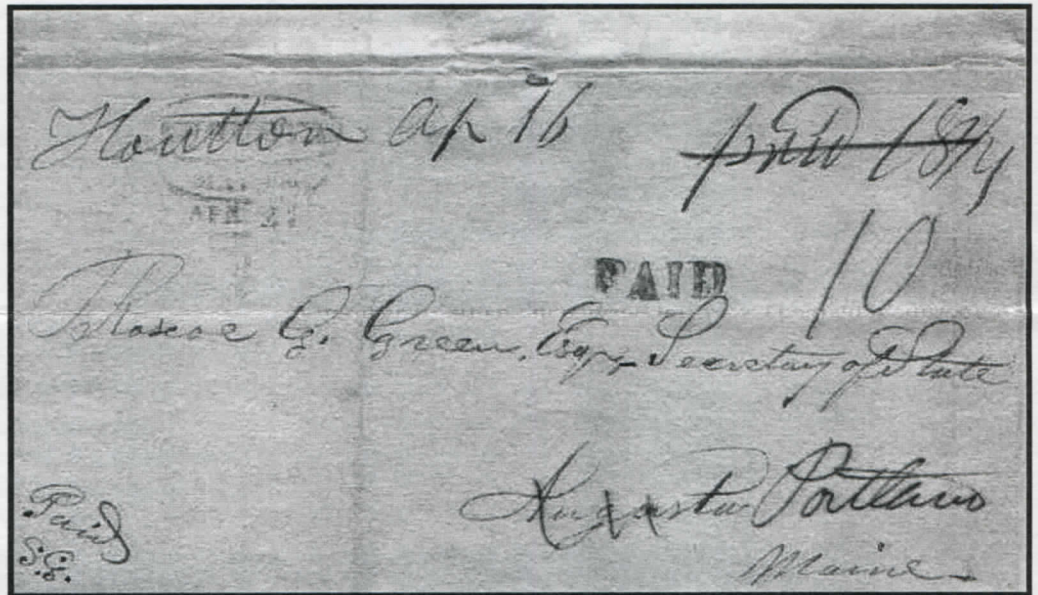 Houlton ap 16 paid 18¾
APR 21
PAID 10
Roscoe G. Green, Esqr, Secretary of State
Augusta Portland
Maine
Paid
S.G.